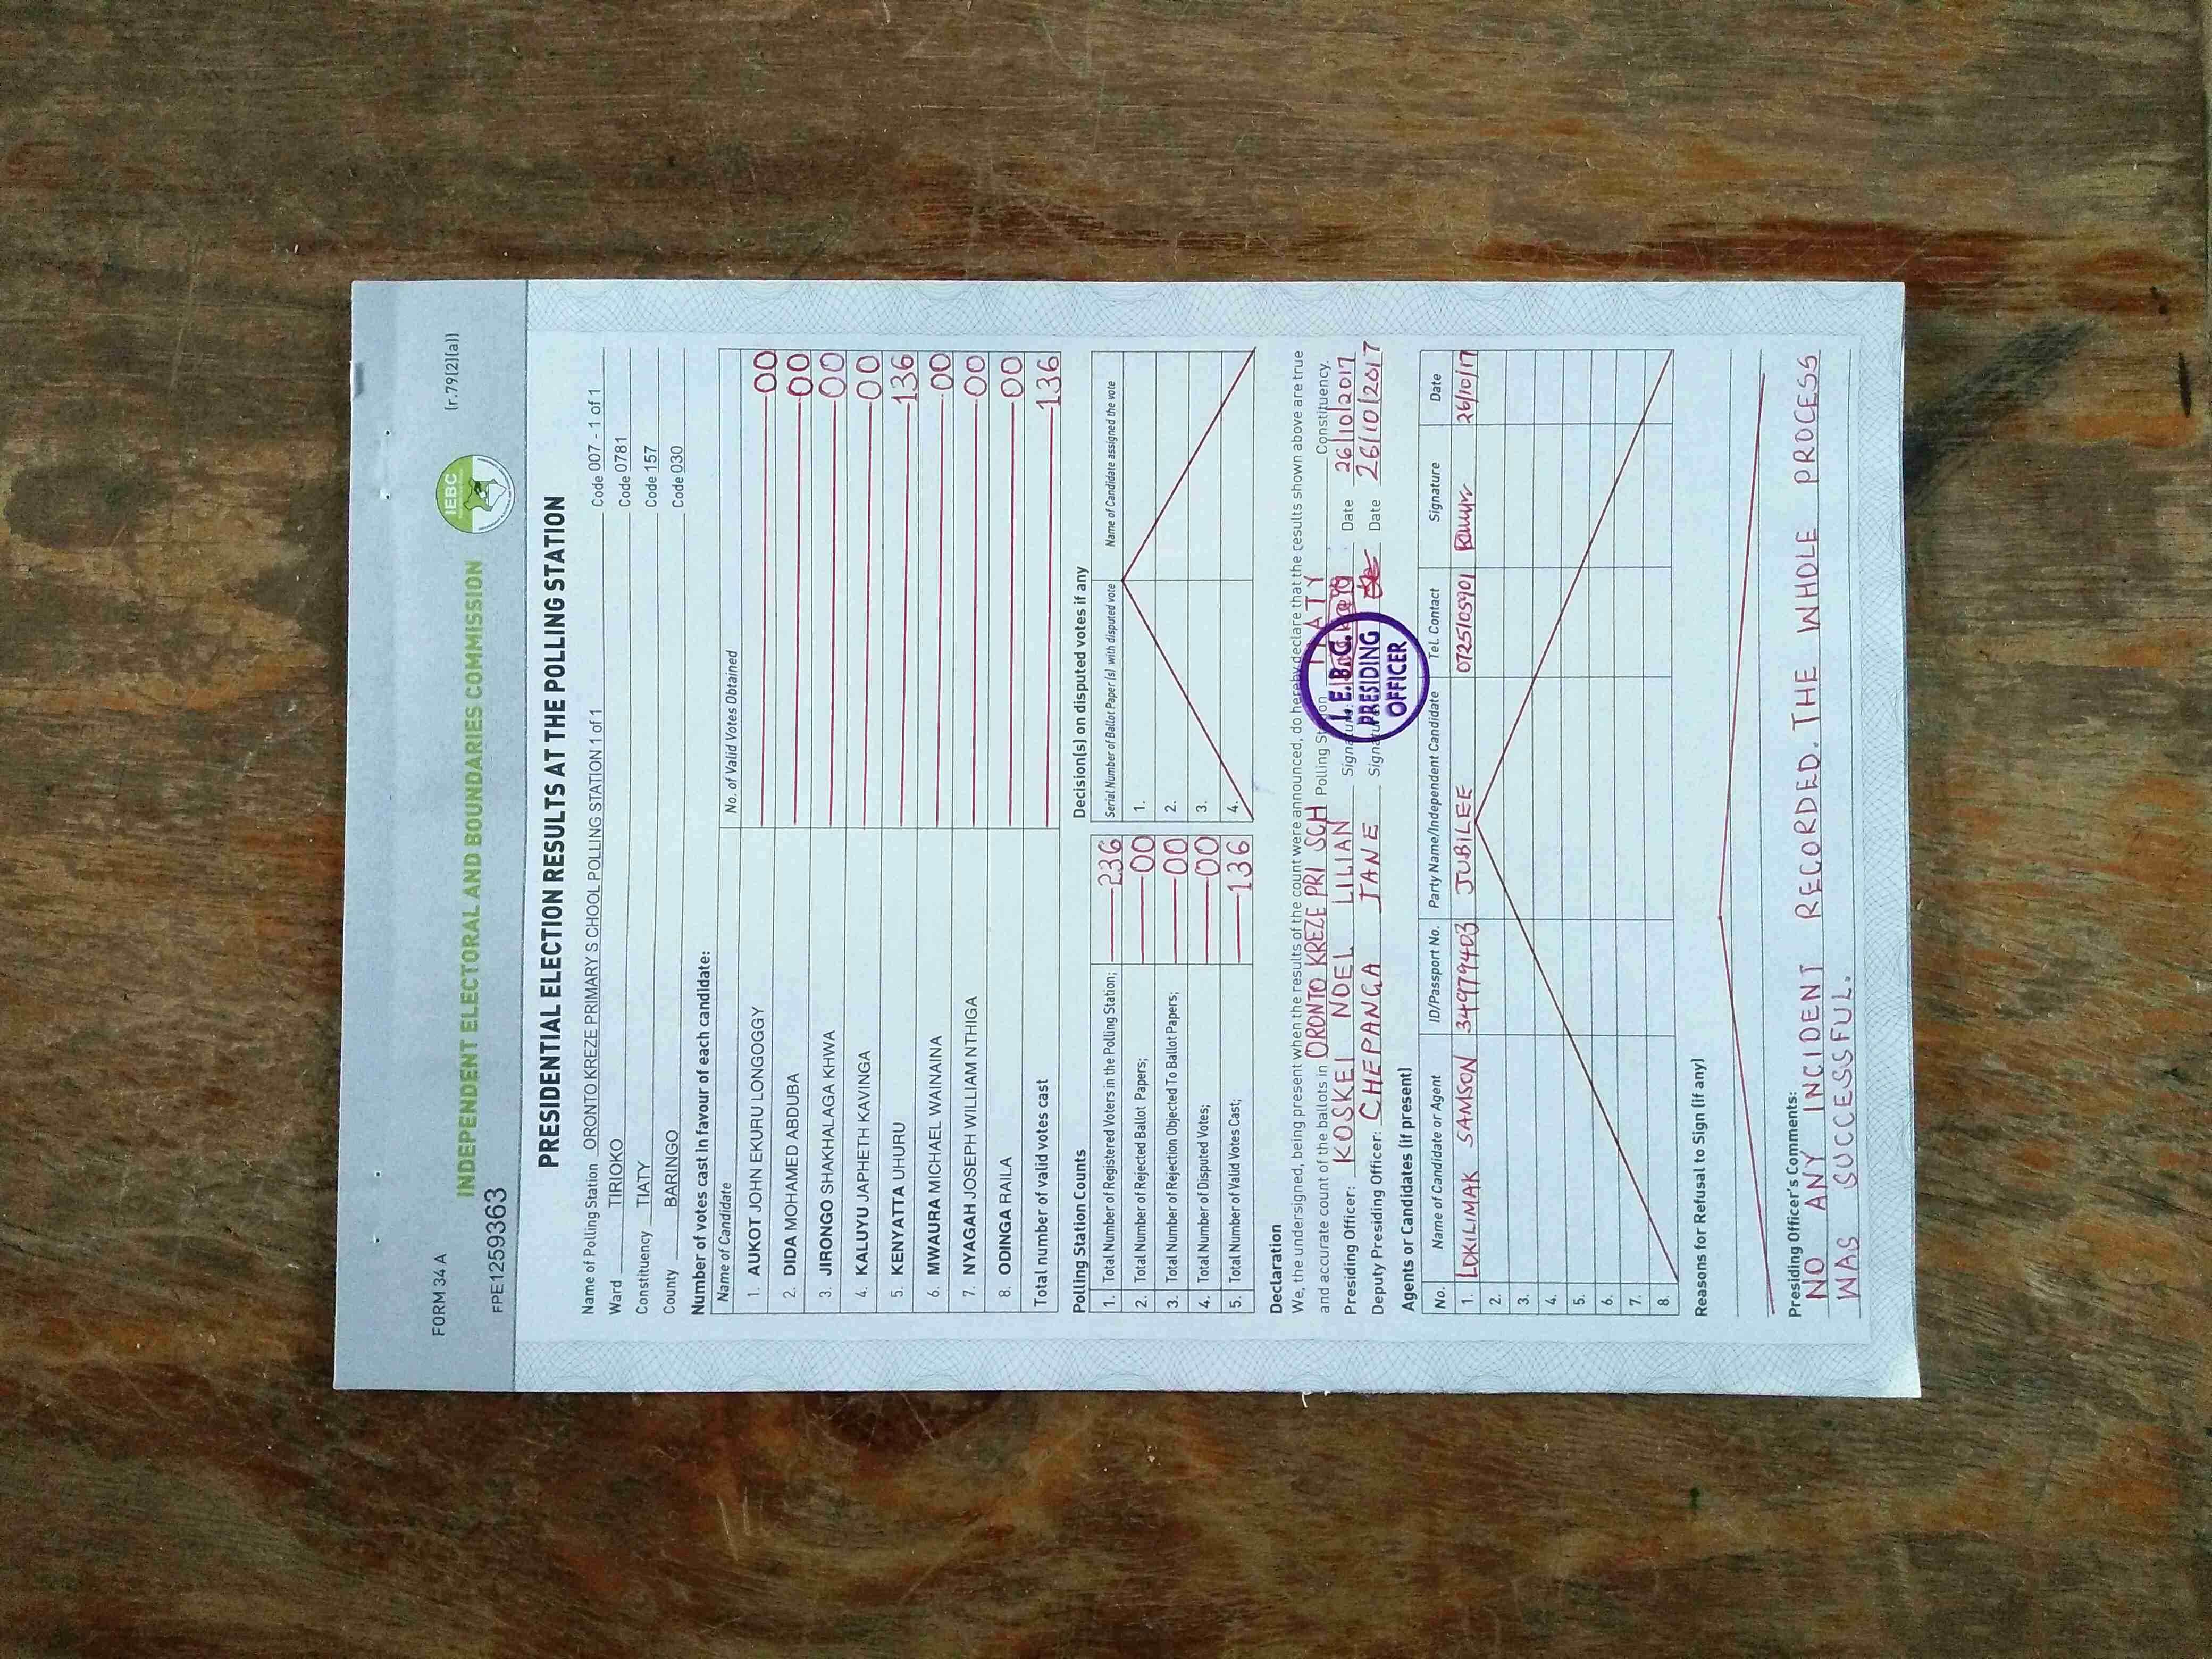 FORM 34 A
(r.79(2)(a))
FPE1259363
INDEPENDENT ELECTORAL AND BOUNDARIES COMMISSION
IEBC
PRESIDENTIAL ELECTION RESULTS AT THE POLLING STATION
Name of Polling Station ORONTO KREZE PRIMARY S CHOOL POLLING STATION 1 of 1 Code 007 - 1 of 1
Ward TIRIOKO Code 0781
Constituency TIATY Code 157
County BARINGO Code 030
Number of votes cast in favour of each candidate:
Name of Candidate No. of Valid Votes Obtained
1. AUKOT JOHN EKURU LONGOGGY 00
2. DIDA MOHAMED ABDUBA 00
3. JIRONGO SHAKHALAGA KHWA 00
4. KALUYU JAPHETH KAVINGA 00
5. KENYATTA UHURU 136
6. MWAURA MICHAEL WAINAINA 00
7. NYAGAH JOSEPH WILLIAM NTHIGA 00
8. ODINGA RAILA 00
Total number of valid votes cast 136
Polling Station Counts
1. Total Number of Registered Voters in the Polling Station; 236
2. Total Number of Rejected Ballot Papers; 00
3. Total Number of Rejection Objected To Ballot Papers; 00
4. Total Number of Disputed Votes; 00
5. Total Number of Valid Votes Cast; 136
Decision(s) on disputed votes if any
Serial Number of Ballot Paper(s) with disputed vote Name of Candidate assigned the vote
1.
2.
3.
4.
Declaration
We, the undersigned, being present when the results of the count were announced, do hereby declare that the results shown above are true
and accurate count of the ballots in ORONTO KREZE PRI SCH Polling Station TIATY Constituency.
Presiding Officer: KOSKEI NDEL LILIAN Signature: Date 26/10/2017
Deputy Presiding Officer: CHEPANGA JANE Signature Date 26/10/2017
I.E.B.C.
PRESIDING
OFFICER
Agents or Candidates (if present)
No. Name of Candidate or Agent ID/Passport No. Party Name/Independent Candidate Tel. Contact Signature Date
1. LOKILIMAK SAMSON 34979403 JUBILEE 0725105901 26/10/17
2.
3.
4.
5.
6.
7.
8.
Reasons for Refusal to Sign (if any)
Presiding Officer's Comments:
NO ANY INCIDENT RECORDED. THE WHOLE PROCESS
WAS SUCCESSFUL.